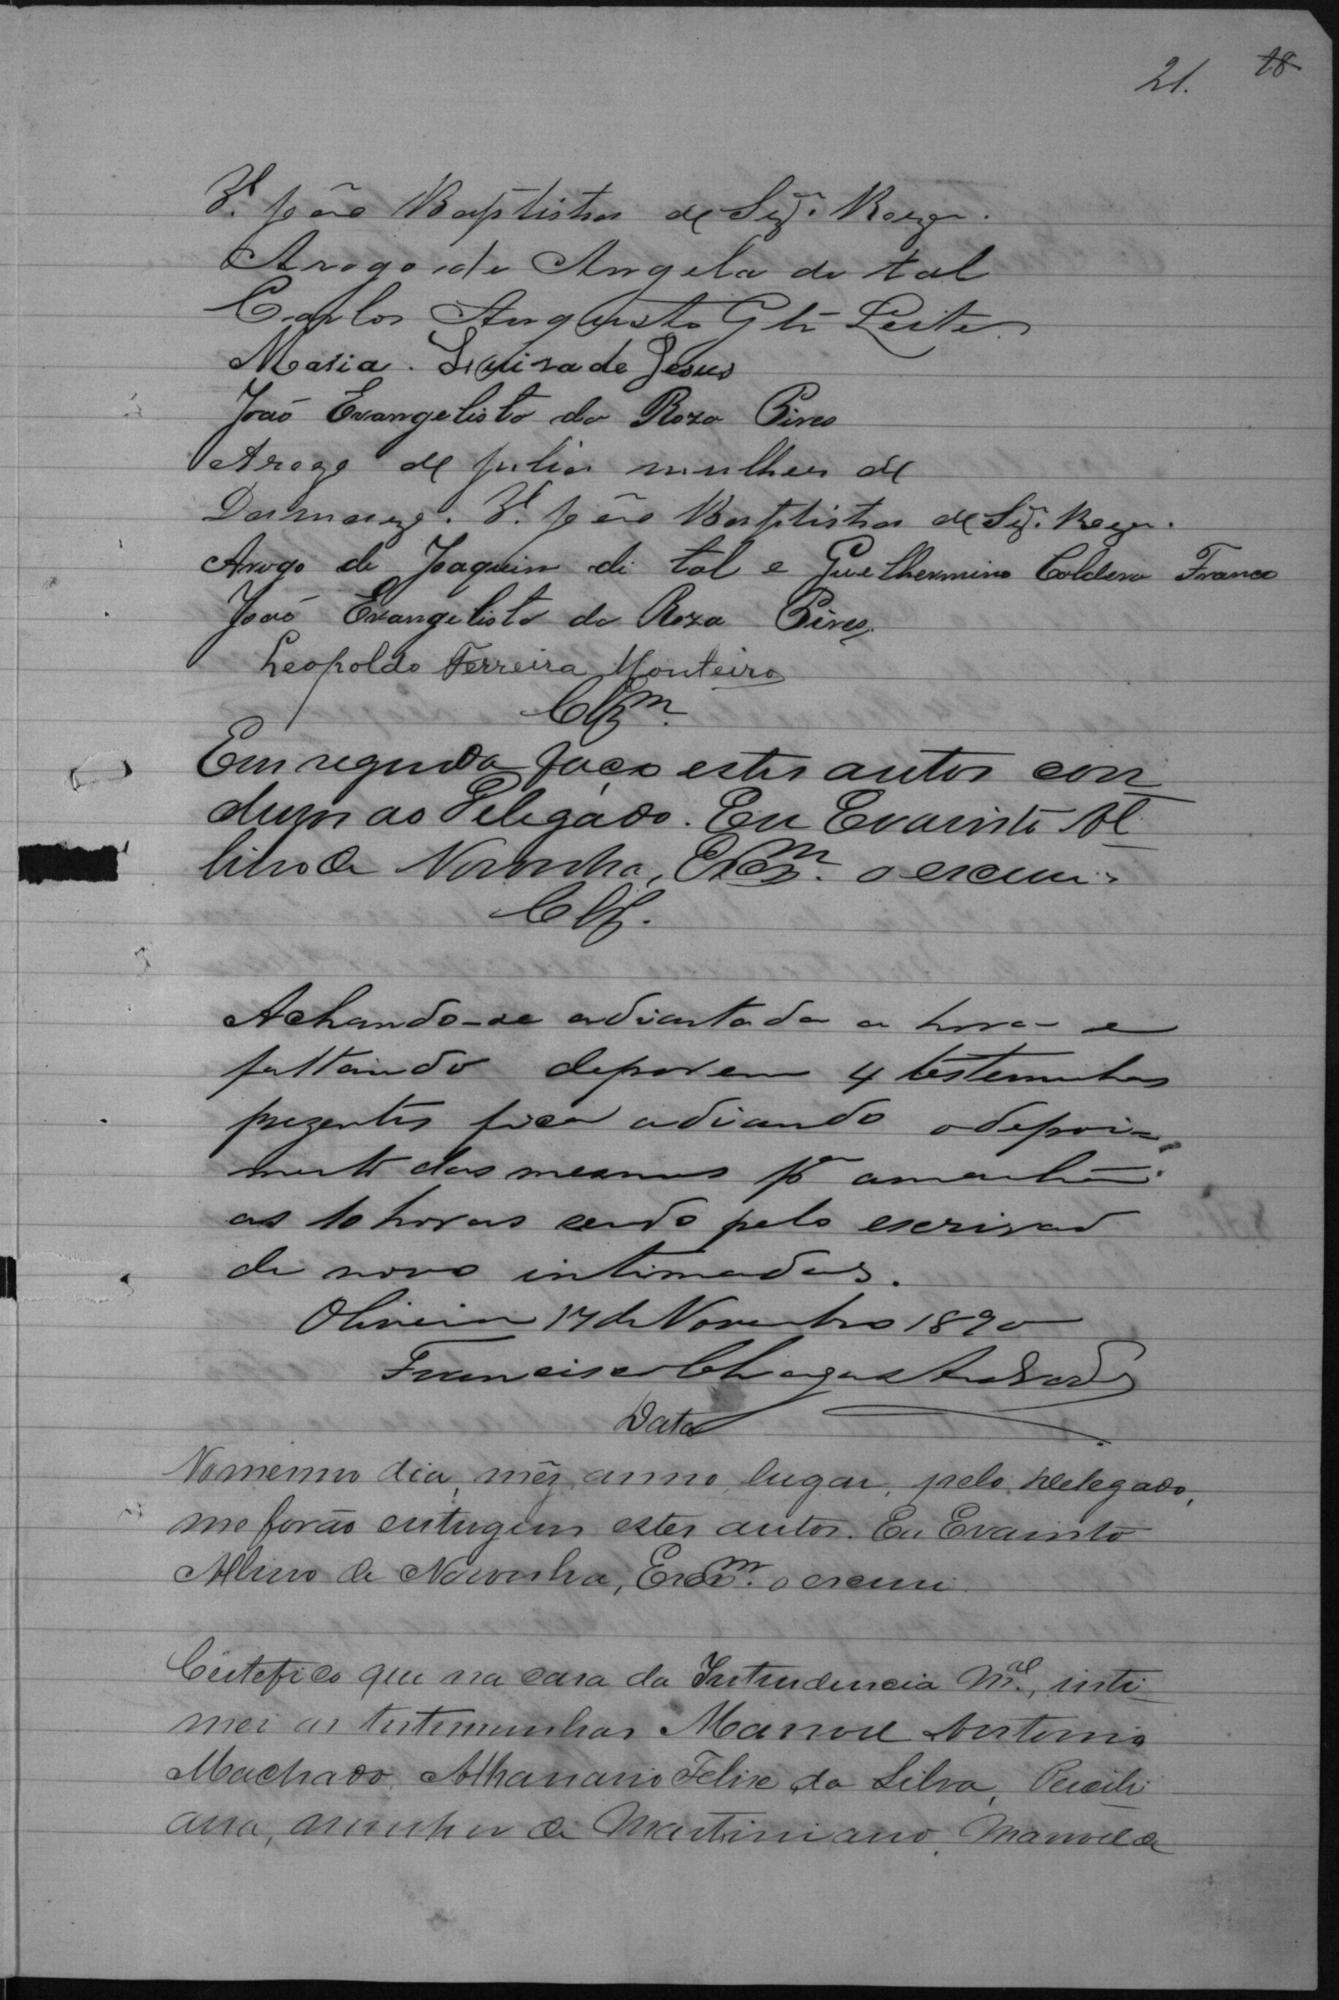 21. 18
Vᵉ. João Baptista de Siqᵃ. Roza.
Arogo de Angela de tal
Carlos Augusto Leite
Maria. Luiza de Jesus
João Evangelista da Roza Pires
Arogo de Julia mulher de
Damazo. Vᵉ. João Baptista de Siqᵃ. Roza.
Arogo de Joaquim de tal e Guelhermino Caldera Franco
João Evangelista da Roza Pires.
Leopoldo Ferreira Monteiro
Clzᵐ.
Em seguida faço estes autos con
cluzos ao Delegado. Eu Evaristo Al
bino de Noronha, Escᵐ. o escrevi.
Clz.
Achando-se adiantada a hora e
faltando deporem 4 testemunhas
prezentes fica adiando o depoi-
mento das mesmas pᵃ amanhã
as 10 horas sendo pelo escrivaõ
de novo intimadas.
Oliveira 17 de Novembro 1890
Francisco Chagas Andrade
Data
No mesmo dia, mêz, anno, lugar, pelo Delegado,
me forão entregues estes autos. Eu Evaristo
Albino de Noronha, Escᵐ. o escrevi.
Certefico que na casa da Intendencia Mᵃˡ, inti
mei as testemunhas Manoel Antonio
Machado, Athanazio Felix da Silva, Percili
ana, mulher de Martiniano, Manoel de